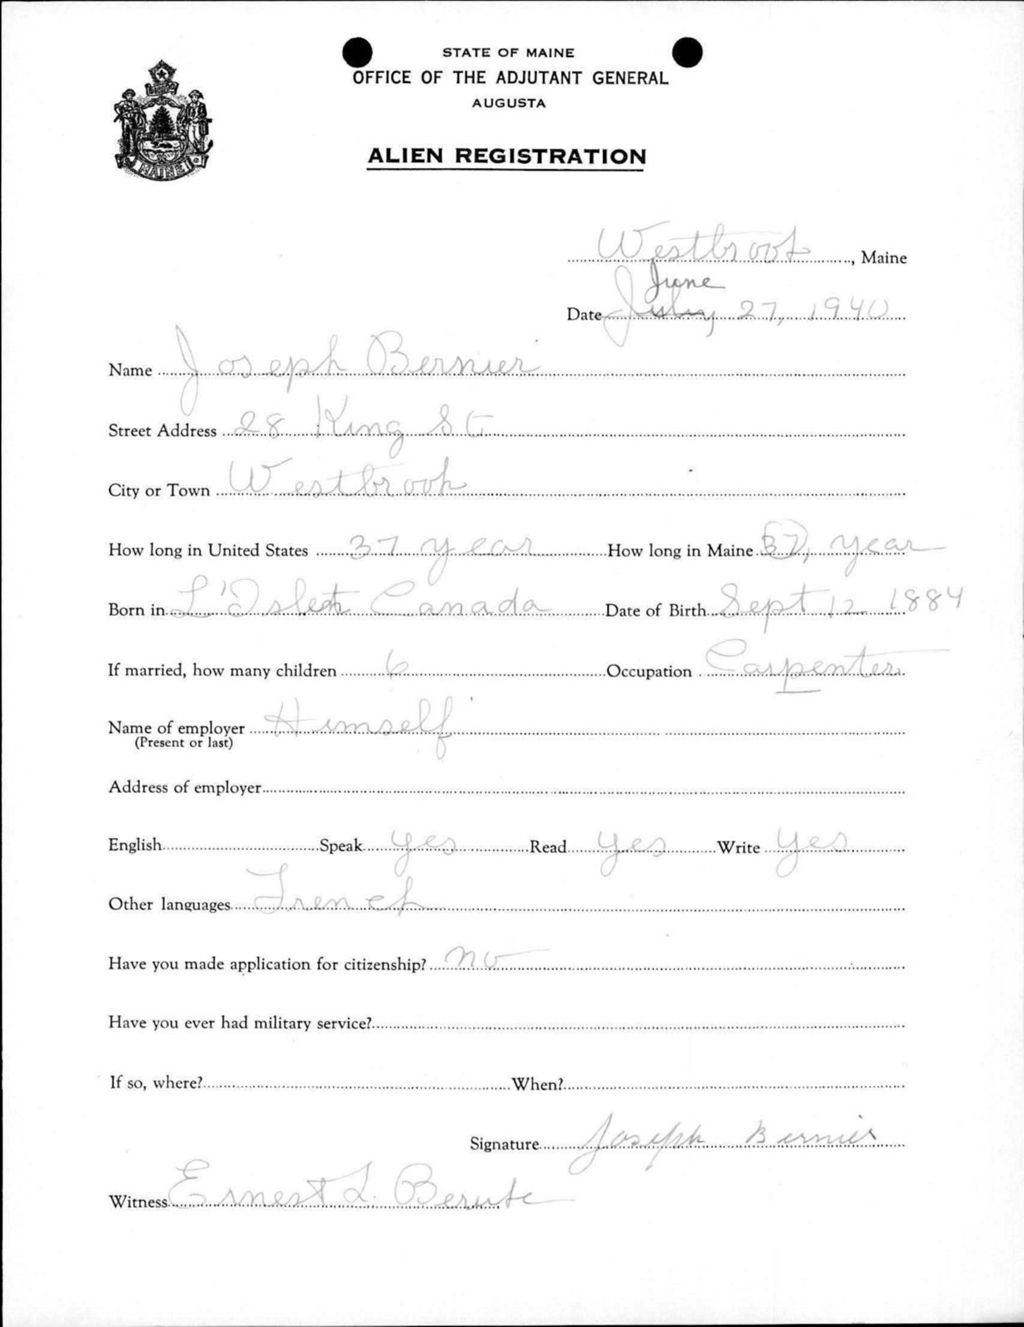 STATE OF MAINE
OFFICE OF THE ADJUTANT GENERAL
AUGUSTA
ALIEN REGISTRATION
MAINE
Westbrook, Maine
June
Date July 27, 1940
Name Joseph Bernier
Street Address 28 King St
City or Town Westbrook
How long in United States 37 year How long in Maine 37, year
Born in L'Islet Canada Date of Birth Sept 12 1884
If married, how many children 6 Occupation Carpenter
Name of employer Himself
(Present or last)
Address of employer
English Speak yes Read yes Write yes
Other languages French
Have you made application for citizenship? no
Have you ever had military service?
If so, where? When?
Signature Joseph Bernier
Witness Ernest L.